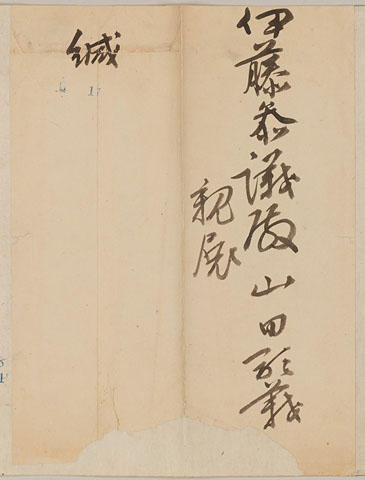 伊藤参議殿 山田顕義
親展
緘